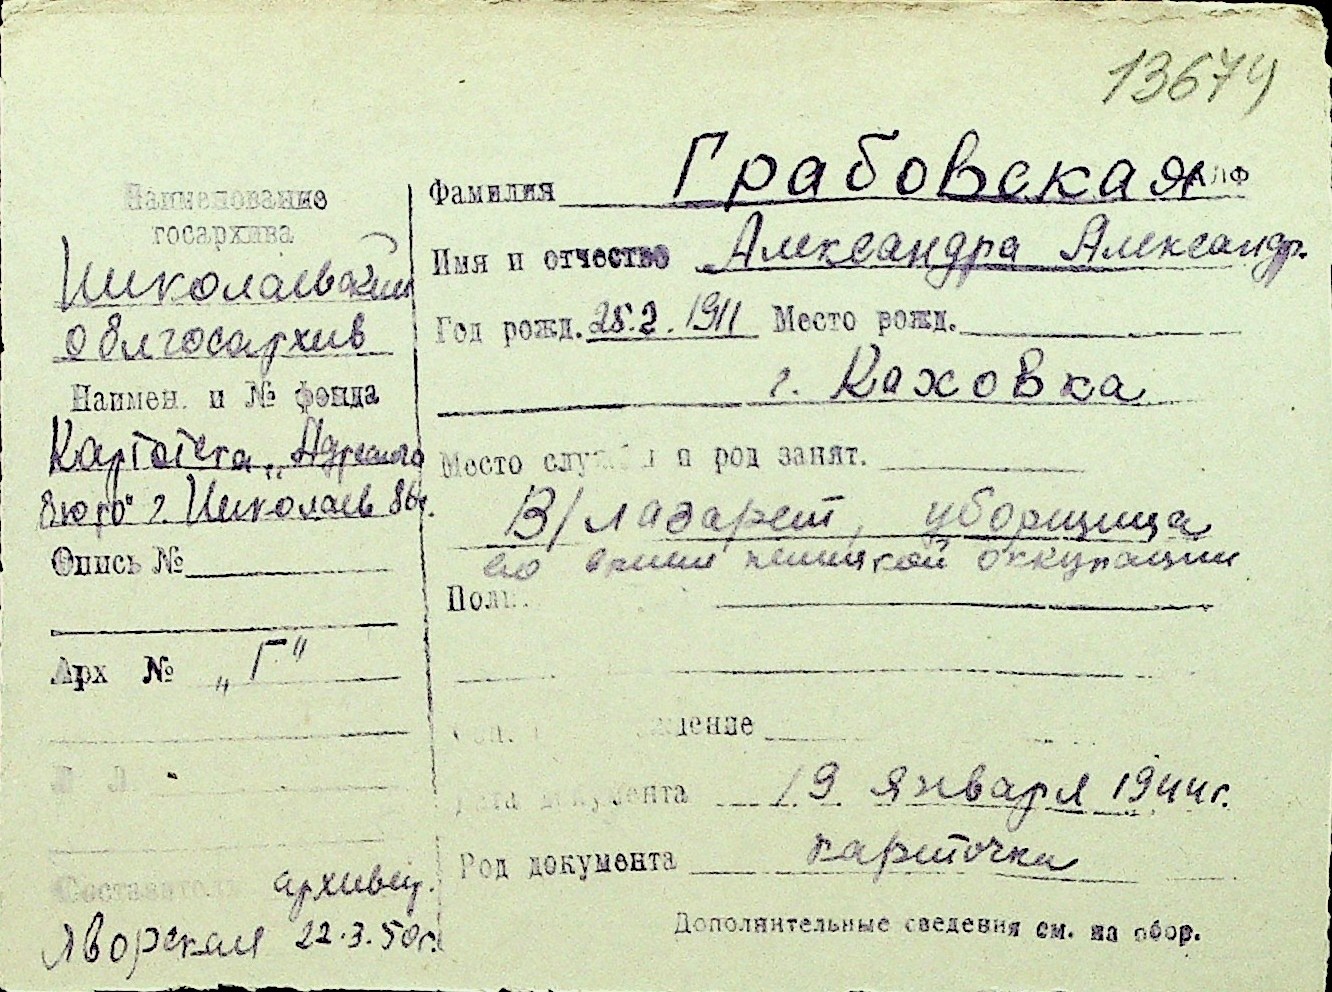 13674
Наименование
госархива
Николаевский
облгосархив
Наимен. и № фонда
Картотека „Адресного
бюро" г. Николаев
Опись №
Арх №  „Г"
Составитель архивец.
Яворская 22.3.50г.
Фамилия Грабовская
Имя и отчество Александра Александр.
Год рожд. 28.2.1911 Место рожд.
г. Каховка
Место службы и род занят.
В/лазарет, уборщица
во время немецкой оккупации
Дата документа 19 января 1944г.
Род документа карточка
Дополнительные сведения см. на обор.